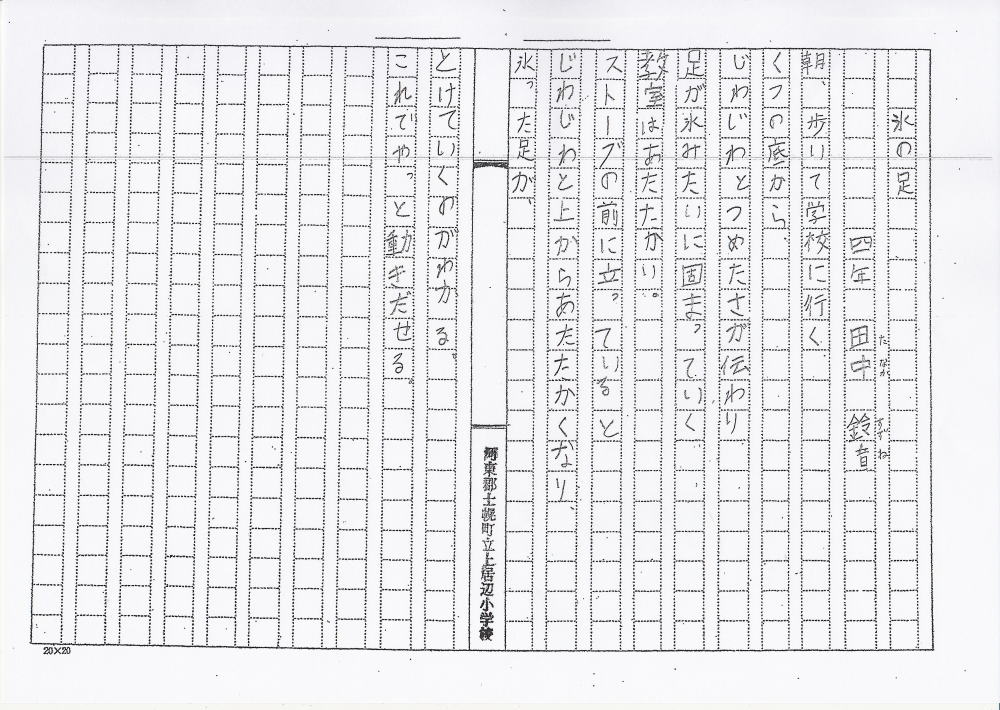 氷の足
四年 田中 鈴音
たなか すずね
朝、歩いて学校に行く
くつの底から、
じわじわとつめたさが伝わり
足が氷みたいに固まっていく。
教室はあたたかい。
ストーブの前に立っていると
じわじわと上からあたたかくなり、
氷った足が、
河東郡士幌町立上居辺小学校
とけていくのがわかる。
これでやっと動きだせる。
20×20